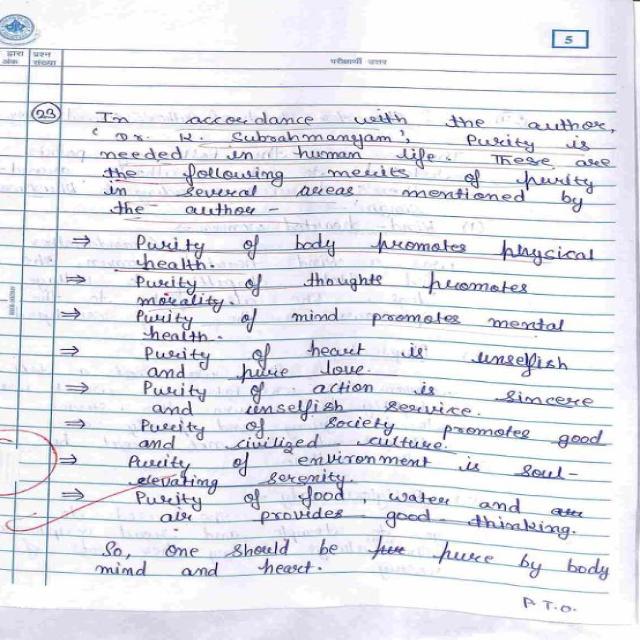 5
द्वारा प्रश्न
अंक संख्या
परीक्षार्थी उत्तर
23 In accordance with the author,
'Dr. K. Subrahmanyam', Purity is
needed in human life. These are
the following merits of purity
in several areas mentioned by
the author -
⇒ Purity of body promotes physical
health.
⇒ Purity of thoughts promotes
morality.
⇒ Purity of mind promotes mental
health.
⇒ Purity of heart is unselfish
and pure love.
⇒ Purity of action is sincere
and unselfish service.
⇒ Purity of society promotes good
and civilized culture.
⇒ Purity of environment is soul-
elevating serenity.
⇒ Purity of food, water and
air provides good thinking.
So, one should be pure by body
mind and heart.
P.T.O.